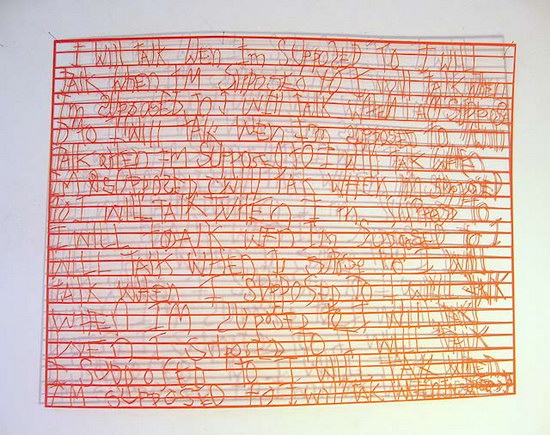 I WILL TALK WEN Im SUPPOZED TO I WILL
TALK WHEN I'M SUPPOSED TO I WILL TALK
I'm SUPPOUSED TO I WILL TALK WHEN I AM SUPPOSE
D TO I WILL TALK WEN I'm SUPPOSED TO I WILL
TALK WHEN I'M SUPPOSED TO I WILL TALK WHEN
I'M SUPPOSED I WILL TALK WHEN I'M SUPPOSED
TO I WILL TALK WHEN I'm SUPPOSED TO I
I WILL TOALK WEN I'm SUPPOSED TO I
WILL TALK WHEN I TO I WILL
TALK WHEN I SUPPOSED TO I WILL TALK
WHEN I'M SUPOSED TO I WILL TALK
WEN I SUPOSED TO I WILL TALK
I SUPPOCED TO I WILL TALK WHEN
I'M SUPPOSED TO I WILL TALK